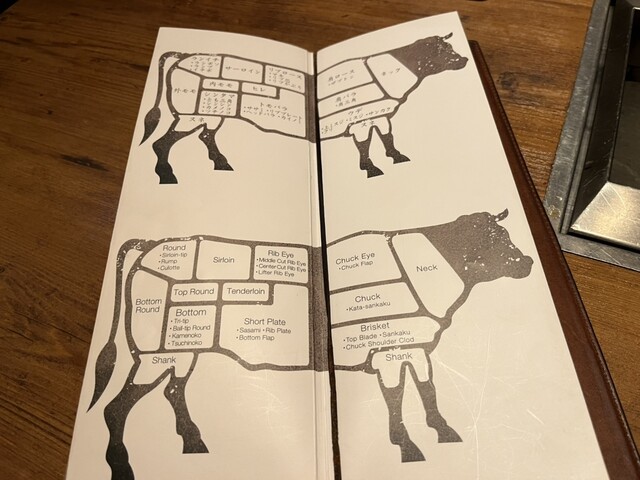 サーロイン
リブロース
内モモ
ヒレ
外モモ
シンタマ
トモバラ
スネ
肩ロース
ネック
肩バラ
ウデ
スネ
Round
•Sirloin-tip
•Rump
•Culotte
Sirloin
Rib Eye
•Middle Cut Rib Eye
•Center Cut Rib Eye
•Lifter Rib Eye
Top Round
Tenderloin
Bottom
Round
Bottom
•Tri-tip
•Ball-tip Round
•Kamenoko
•Tsuchinoko
Short Plate
•Sasami •Rib Plate
•Bottom Flap
Shank
Chuck Eye
•Chuck Flap
Neck
Chuck
•Kata-sankaku
Brisket
•Top Blade •Sankaku
•Chuck Shoulder Clod
Shank